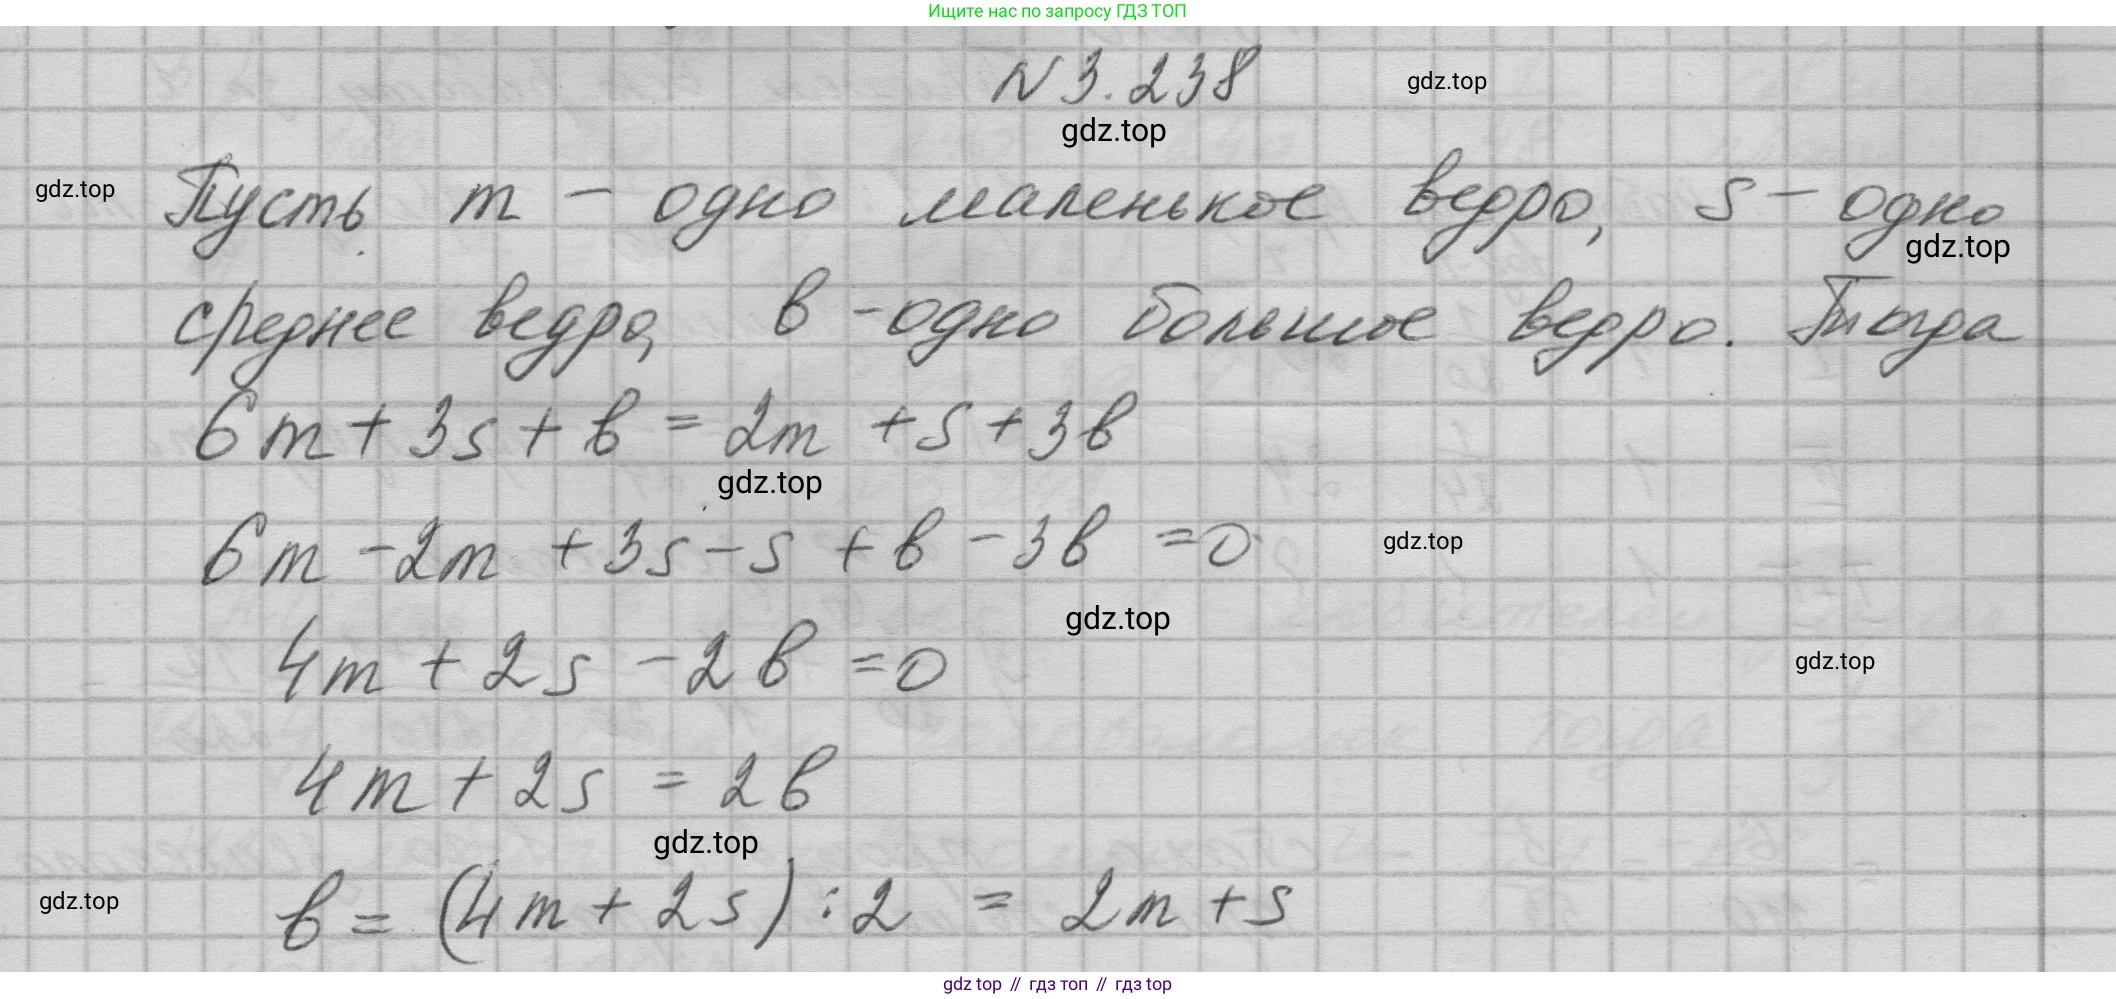 Ищите нас по запросу ГДЗ ТОП
N 3.238
gdz.top
gdz.top
gdz.top
Пусть m - одно маленькое ведро, s - одно
gdz.top
среднее ведро, b - одно большое ведро. Тогда
6m + 3s + b = 2m + s + 3b
gdz.top
6m - 2m + 3s - s + b - 3b = 0
gdz.top
gdz.top
4m + 2s - 2b = 0
gdz.top
4m + 2s = 2b
gdz.top
gdz.top
b = (4m + 2s) : 2 = 2m + s
gdz top // гдз топ // gdz top